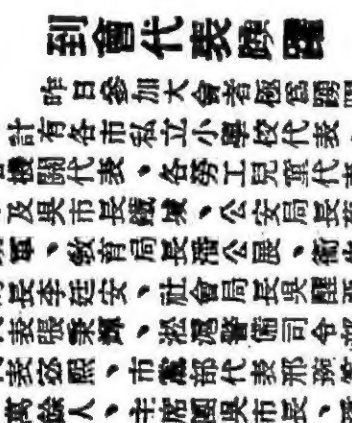 到會代表踴躍
昨日參加大會者極爲踴躍
計有各市私立小學校代表、
機關代表、各勞工兒童代表
及吳市長鐵城、公安局長蔡
軍、敎育局長潘公展、衞生
長李廷安、社會局長吳醒亞
代表張秉輝、淞滬警備司令部
代表宓熙、市黨部代表邢琬
萬餘人、主席團吳市長、潘